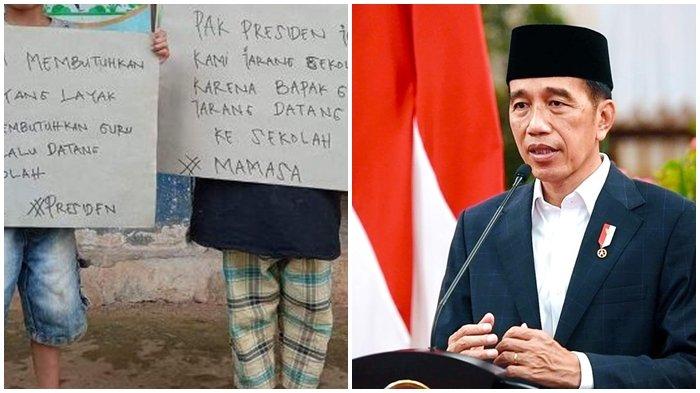 MEMBUTUHKAN
YANG LAYAK
MEMBUTUHKAN GURU
DATANG
PRESIDEN
PAK PRESIDEN
KAMI JARANG
KARENA BAPAK
JARANG DATANG
KE SEKOLAH
MAMASA